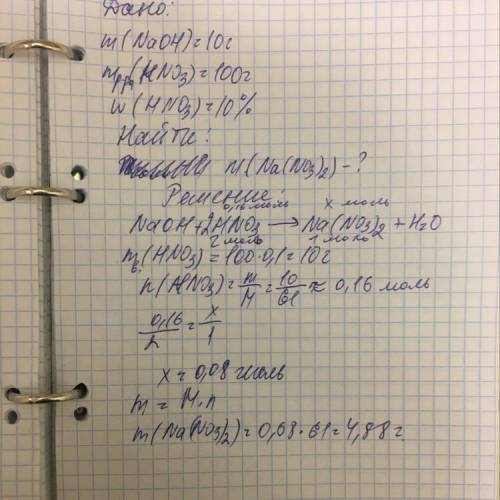 Дано:
m(NaOH)=10г
mр-ра(HNO3)=100г
w(HNO3)=10%
Найти:
m(Na(NO3)2)-?
Решение:
0,16 моль x моль
NaOH+2HNO3→Na(NO3)2+H2O
2 моль 1 моль
mв.(HNO3)=100·0,1=10г
n(HNO3)=m/M=10/61≈0,16 моль
0,16/2=x/1
x=0,08 моль
m=M·n
m(Na(NO3)2)=0,08·61=4,88г